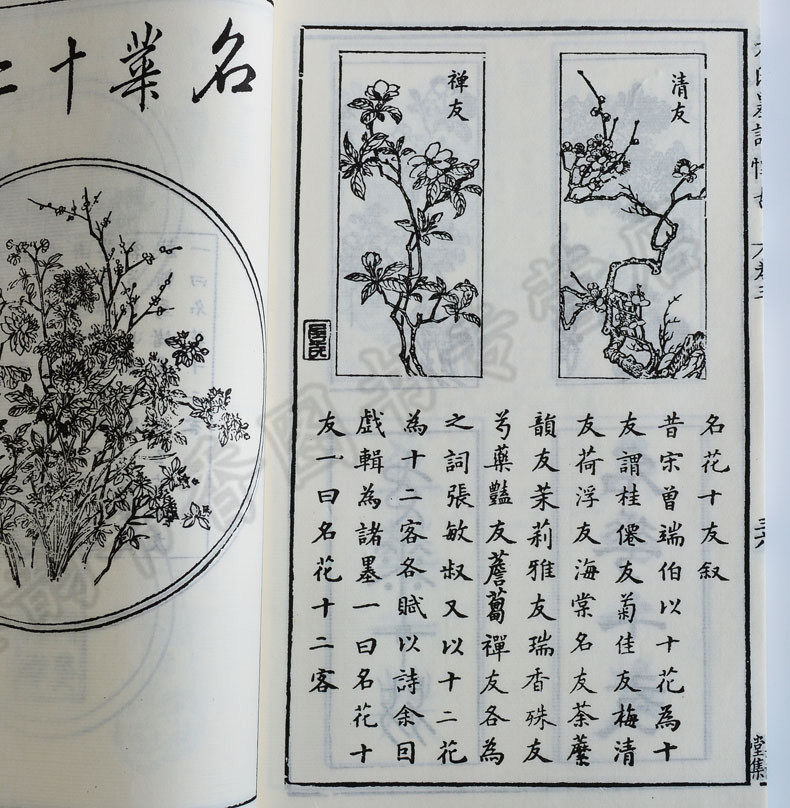 清友
禅友
名花十友叙
昔宋曾瑞伯以十花為十
友謂桂僊友菊佳友梅清
友荷浮友海棠名友荼蘼
韻友茉莉雅友瑞香殊友
芍藥豔友薝蔔禪友各為
之詞張敏叔又以十二花
為十二客各賦以詩余因
戲輯為諸墨一曰名花十
友一曰名花十二客
名 十